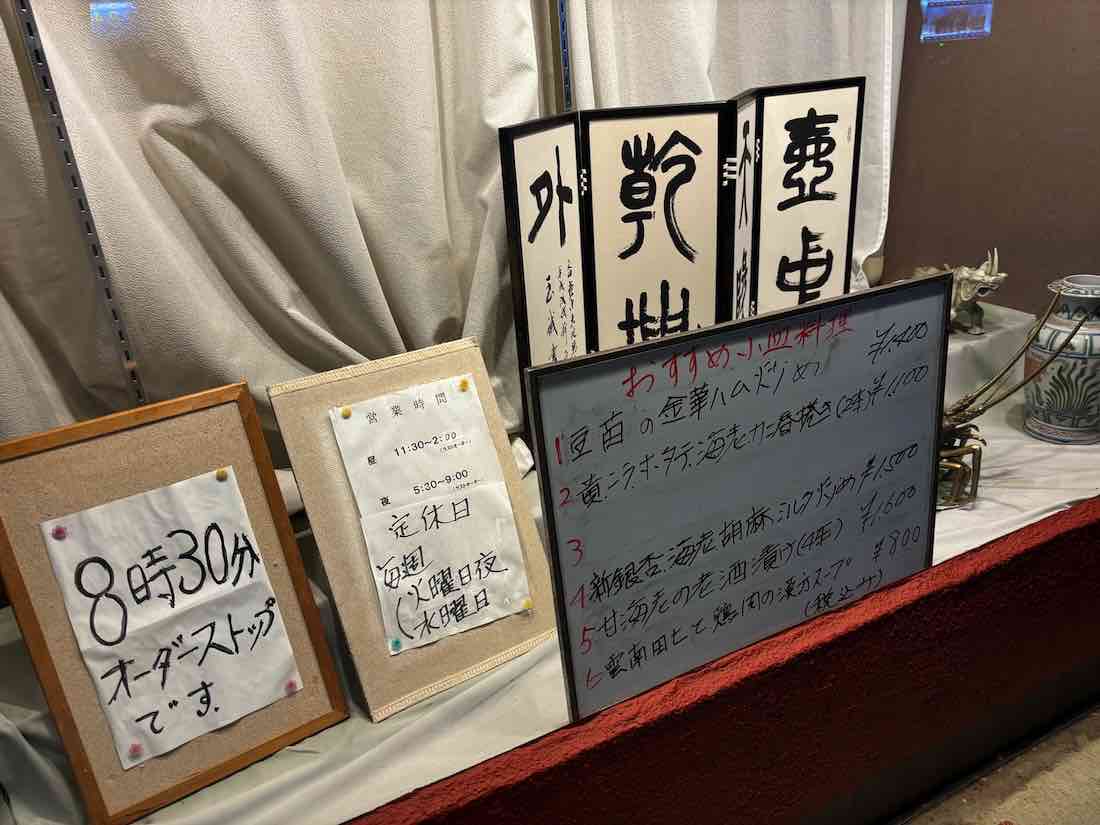 8時30分
オーダーストップ
です.
営業時間
昼 11:30~2:00
(ラストオーダー)
夜 5:30~9:00
(ラストオーダー)
定休日
毎週
(火曜日夜
水曜日
外
乾
壺
おすすめ小皿料理
1 豆苗の金華ハム炒め ¥1,400
2 黄ニラホタテ海老カニ春捲き(2本)¥1,100
3
4 新銀杏海老胡麻ミルク炒め ¥1,500
5 甘海老の老酒漬け(4本) ¥1,600
6 雲南田七と鶏肉の漢方スープ ¥800
(税込み)